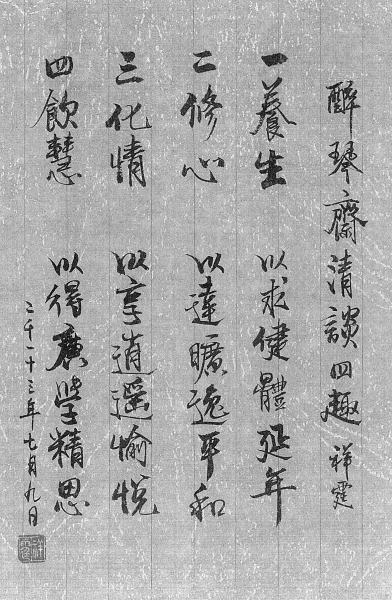 醉琴齋清談四趣 祥霆
一養生 以求健體延年
二修心 以達曠逸平和
三化情 以享逍遥愉悦
四飲慧 以得廣學精思
二千十三年七月九日